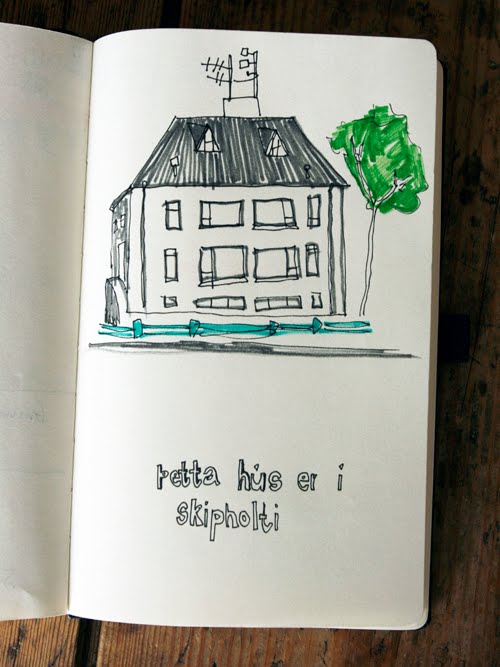 þetta hús er í
skipholti